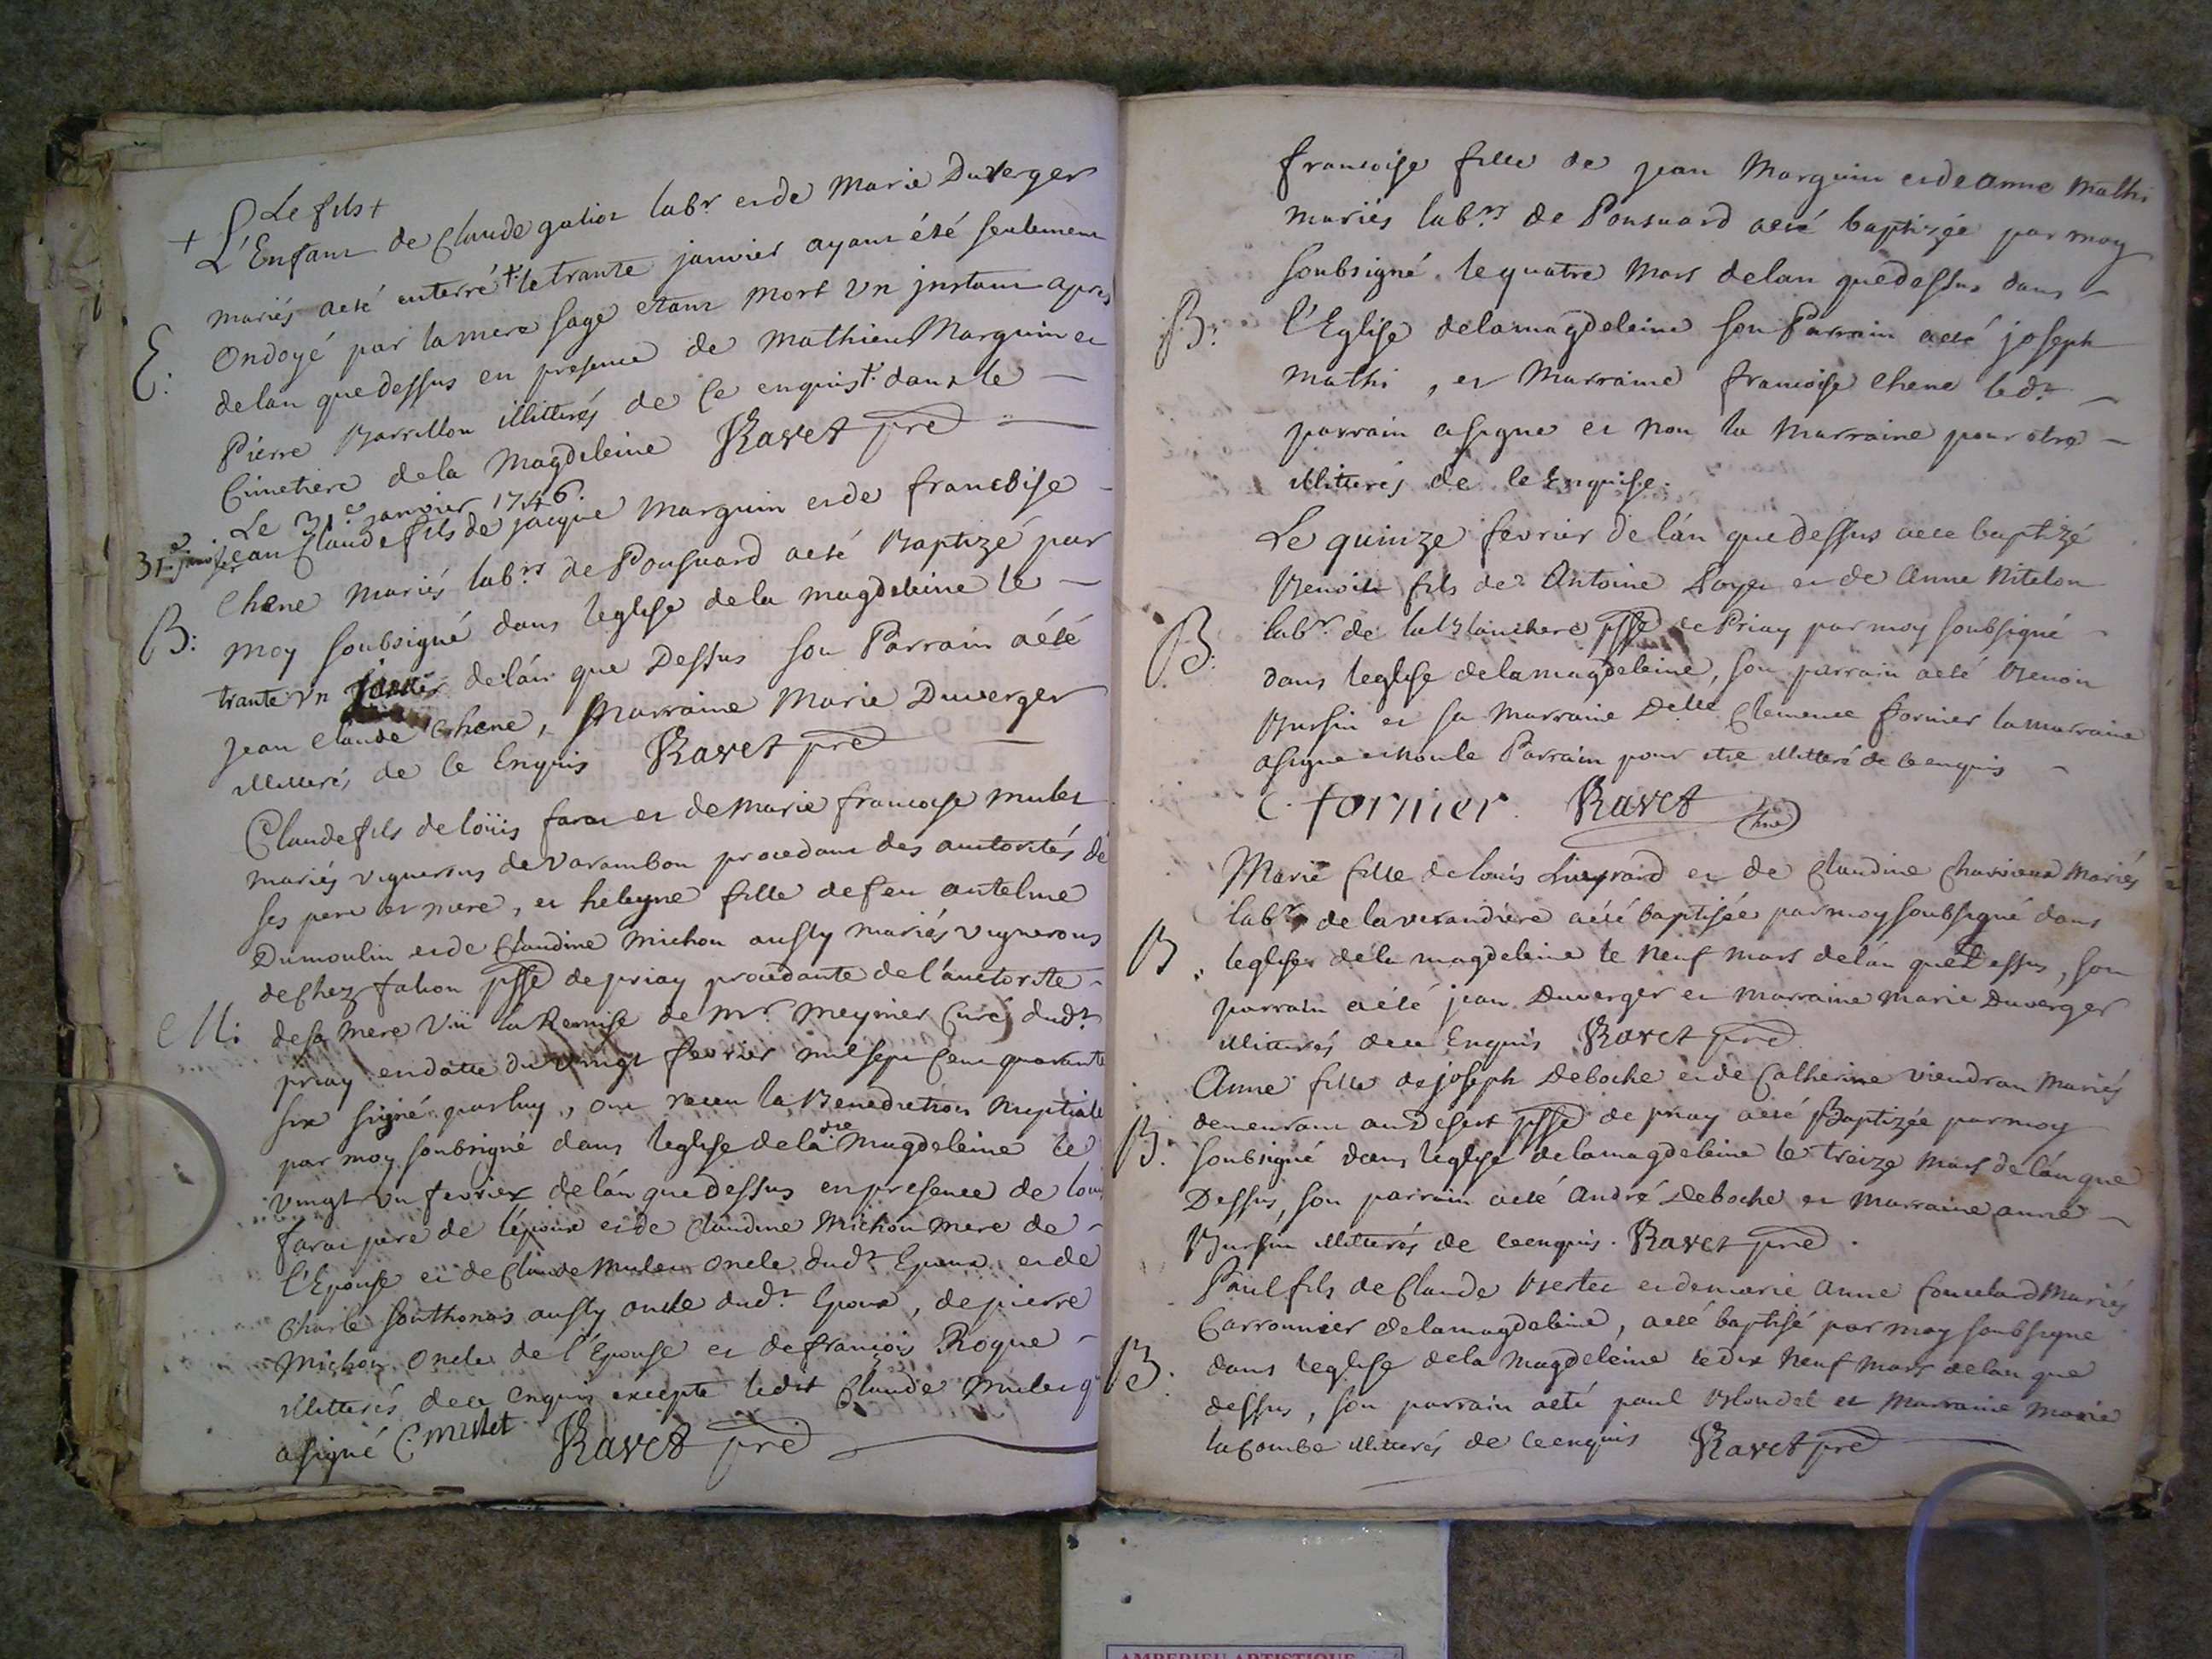 Le fils +
+ L'Enfant de Claude galion labr et de Marie Duverger
mariés a eté enterré + le trante janvier ayant été seulement
E. Ondoyé par la mere sage etant mort un instant apres
de lan que dessus en presence de Mathieu Marguin et
Pierre Barrillon illitterés de ce enquis +. dans le
Cimetiere de la Magdeleine Ravet pre
Le 31e janvier 1746.
31e janvier Jean Claude fils de jacque Marguin et de francoise
Chene mariés labrs de Ponsuard a eté Baptizé par
B: moy soubsigné dans leglise de la magdeleine le
trante un janvier de lán que Dessus son Parrain a été
jean claude Chene, Marraine Marie Duverger
illitterés de ce Enquis Ravet pre
Claude fils de loüis farai et de Marie francoise mulet
mariés vignerons de varambon procedant des auttorités de
ses pere et mere, et heleyne fille de feu antelme
Dumoulin et de Claudine Michon aussy mariés vignerons
de Chez falion psse de priay procedante de l'auctorite
M: de sa mere Vü la Remise de Mr. Meynier Curé dudt.
priay en datte du vingt fevrier mil sept Cent quarante
six signé par luy, ont receu la Benediction Nuptiale
par moy soubsigné dans leglise de la ditte Magdeleine le
vingt un fevrier de lán que dessus en presence de louis
farai pere de lépoux et de Claudine Michon mere de
l'Epouse et de Claude Mulet oncle dudt Epoux, et de
Charle southonas aussy oncle dudt. Epoux, de pierre
Michon oncle de l'Epouse et de françois Roque
illitterés de ce enquis excepté ledit Claude Mulet q
a signé C. mulet Ravet pre
francoise fille de jean Marguin et de anne Mathi
mariés labrs de Ponsuard a eté baptizée par moy
soubsigné le quatre Mars de lan que dessus dans
B: l'Eglise de la magdeleine son Parrain a eté joseph
mathi, et Marraine francoise Chene ledt.
parrain a signe et non la Marraine pour etre
illitterés de ce Enquise.
Le quinze fevrier de lán que dessus a ete baptizé
Benoit fils de Antoine Loyer et de Anne Nitelon
B: labr. de la Blanchere psse de Priay par moy soubsigné
dans leglise de la magdeleine, son parrain a eté Benoit
Bursin et sa Marraine Delle Clemence fornier la marraine
a signe et non le Parrain pour etre illitteré de ce enquis
C. fornier. Ravet pre
Marie fille de louis Lieprand et de Claudine Chavieux mariés
labrs de la verandiere a eté baptisée par moy soubsigné dans
B. leglise de la magdeleine le Neuf Mars de lán que Dessus, son
parrain a été jean Duverger et marraine Marie Duverger
illitterés de ce Enquis Ravet pre
Anne fille de joseph Deboche et de Catherine viendran Mariés
demeurant au Desert psse de priay a eté Baptizée par moy
B. soubsigné dans leglise de la magdeleine le treize Mars de lán que
Dessus, son parrain a eté André Deboche et Marraine anne
Bursin illitterés de ce enquis. Ravet pre.
Paul fils de Claude Bertet et de marie Anne foucelard Mariés
Carronnier de la magdaleine, a eté baptisé par moy soubsigne
B: dans leglise de la Magdeleine le dix Neuf Mars de lan que
dessus, son parrain a eté paul Blondel et Marraine Marie
la Combe illitterés de ce enquis Ravet pre
AMBERIEU ARTISTIQUE